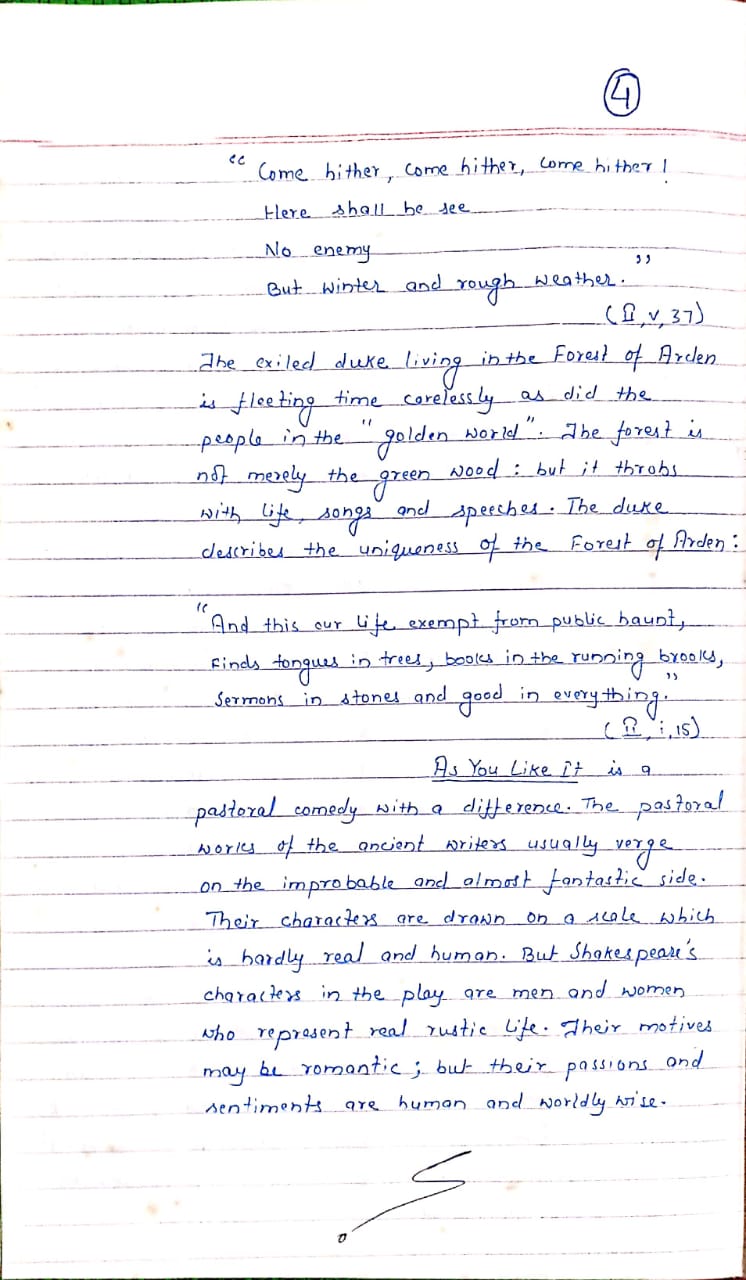 4
“Come hither, come hither, come hither!
Here shall he see
No enemy
But winter and rough weather.”
(II, v, 37)
The exiled duke living in the Forest of Arden
is fleeting time carelessly as did the
people in the "golden world". The forest is
not merely the green wood : but it throbs
with life, songs and speeches. The duke
describes the uniqueness of the Forest of Arden:
“And this our life exempt from public haunt,
Finds tongues in trees, books in the running brooks,
Sermons in stones and good in everything.”
(II, i, 15)
As You Like It is a
pastoral comedy with a difference. The pastoral
works of the ancient writers usually verge
on the improbable and almost fantastic side.
Their characters are drawn on a scale which
is hardly real and human. But Shakespeare's
characters in the play are men and women
who represent real rustic life. Their motives
may be romantic ; but their passions and
sentiments are human and worldly wise.